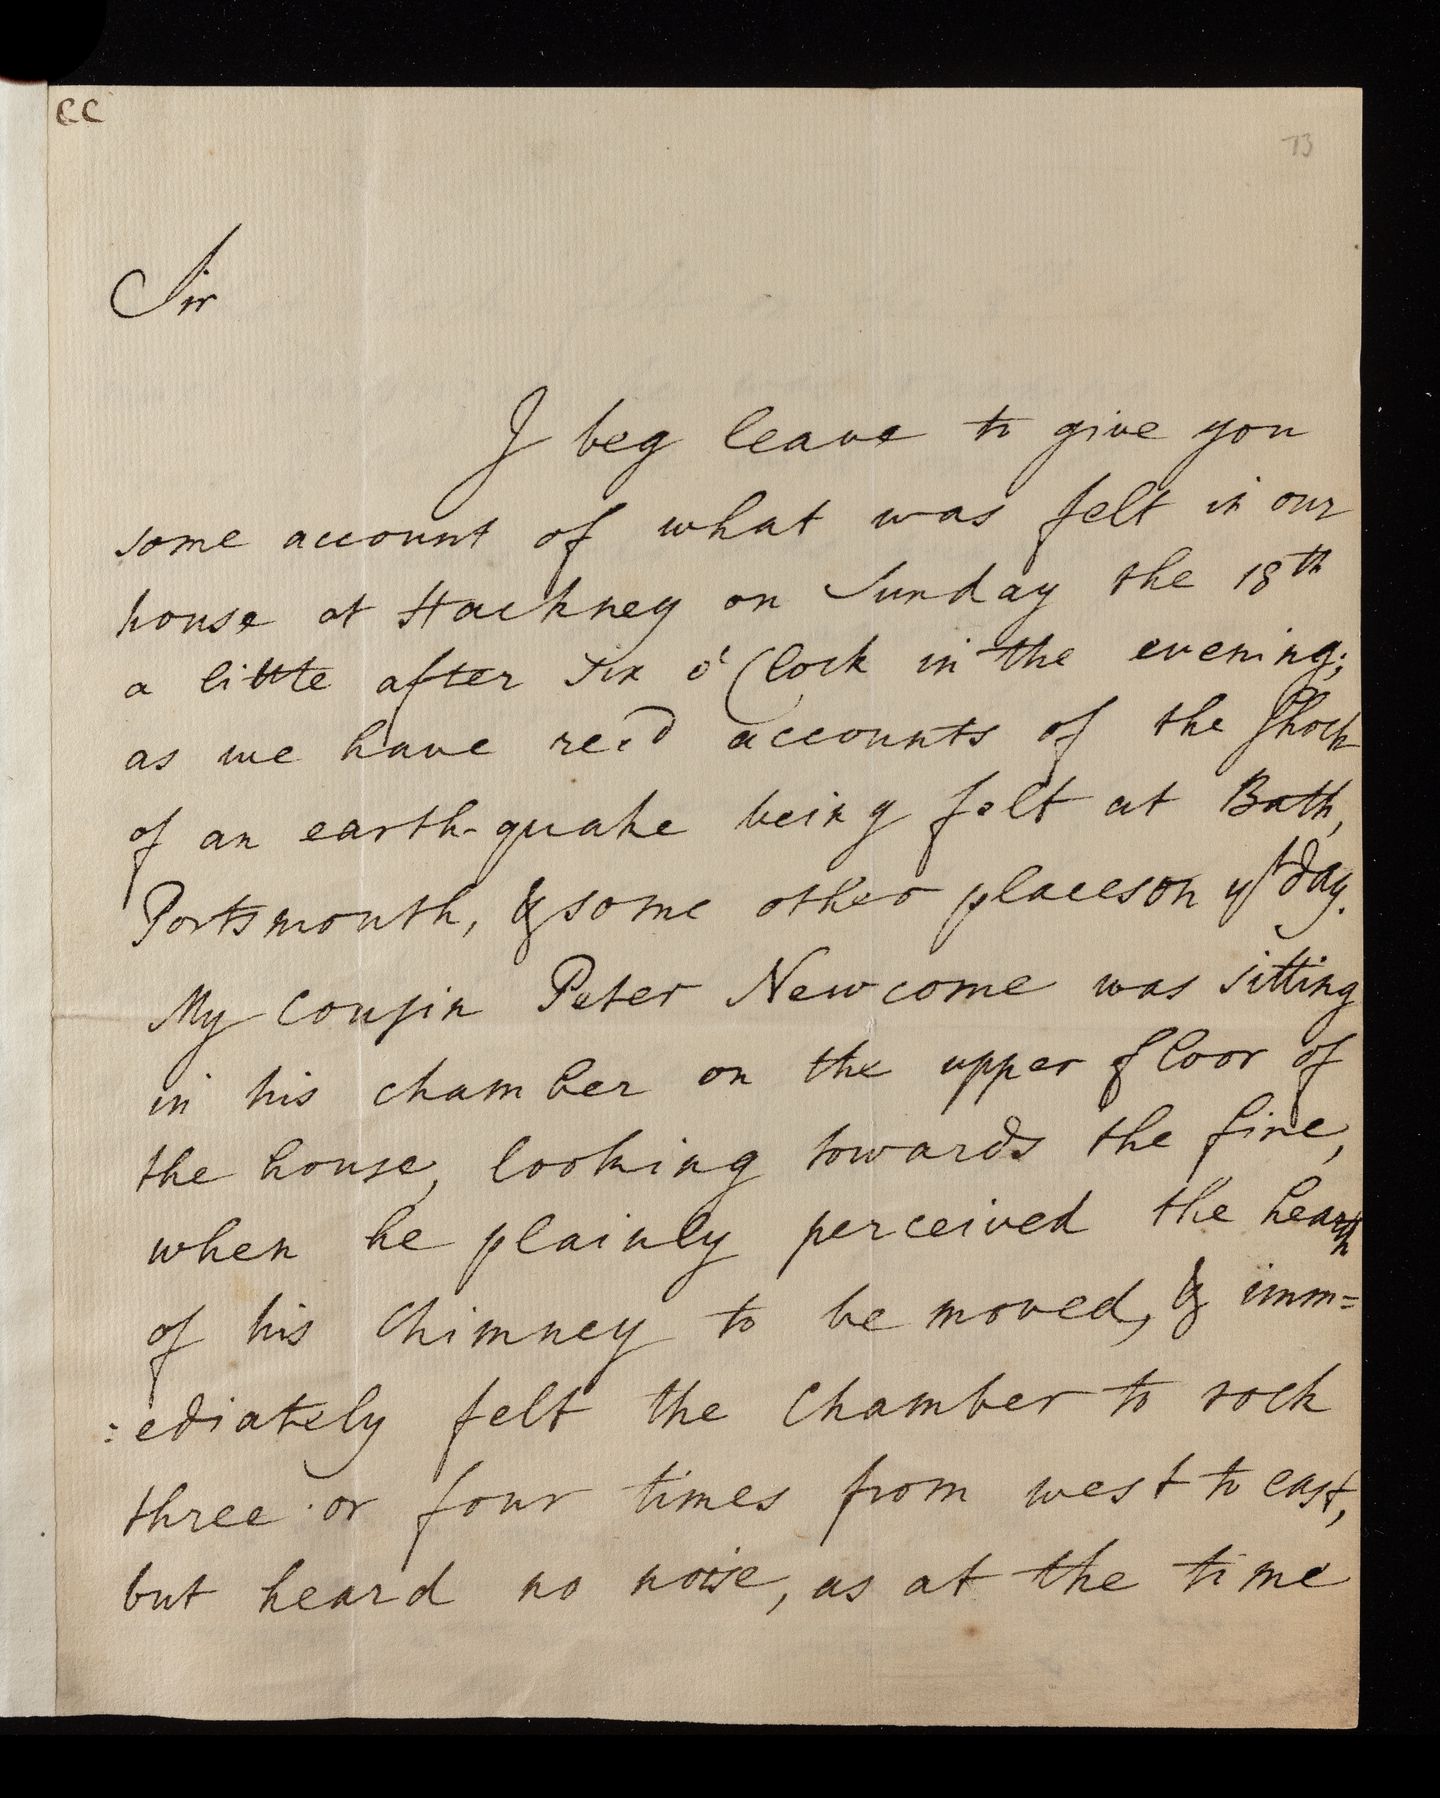 CC
73
Sir
I beg leave to give you
some account of what was felt in our
house at Hackney on Sunday the 18th
a little after Six o' Clock in the evening;
as we have recd accounts of the Shock
of an earth-quake being felt at Bath,
Portsmouth, & some other places on yt day.
My Cousin Peter Newcome was sitting
in his chamber on the upper floor of
the house, looking towards the fire,
when he plainly perceived the hearth
of his Chimney to be moved, & imm=
:ediately felt the Chamber to rock
three or four times from west to east,
but heard no noise, as at the time